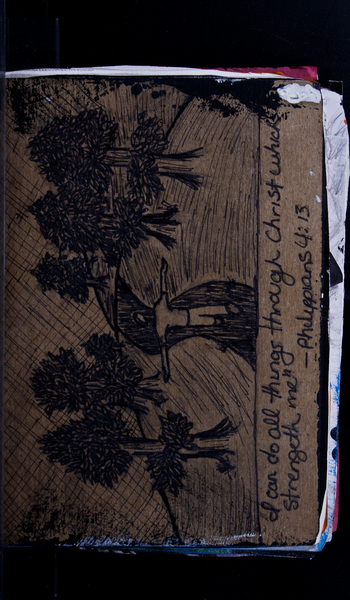 I can do all things through Christ which
strengeth me"
- Philippians 4:13